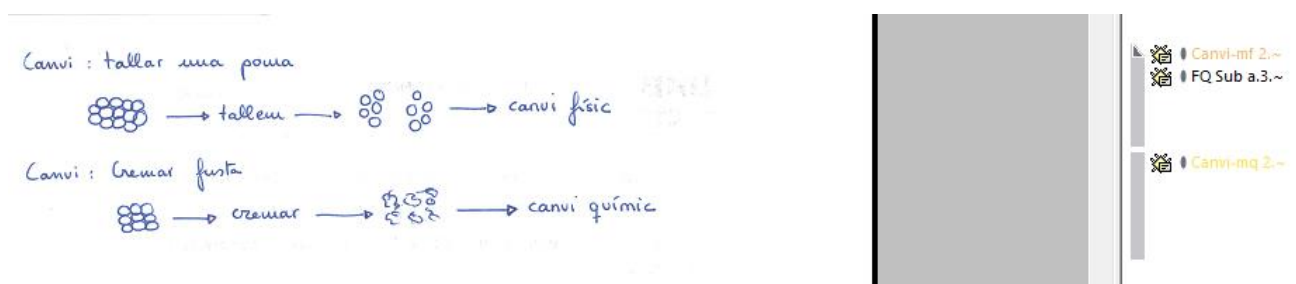 Canvi : tallar una poma
→ tallem → → canvi físic
Canvi : Cremar fusta
→ cremar → → canvi químic
Canvi-mf 2.~
FQ Sub a.3.~
Canvi-mq 2.~